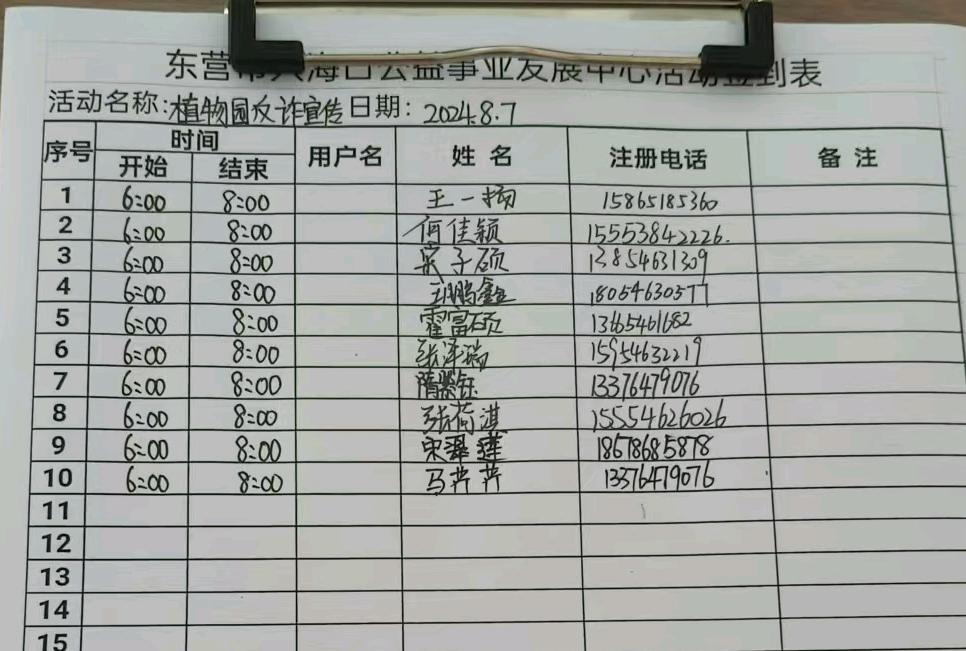 东营市 海口公益事业发展中心活动签到表
活动名称:植物园反诈宣传 日期: 2024.8.7
序号 时间 用户名 姓名 注册电话 备注
开始 结束
1 6:00 8:00 王一扬 15865185360
2 6:00 8:00 何佳颖 15553842226.
3 6:00 8:00 宋子硕 13854631309
4 6:00 8:00 王鹏鑫 18054630577
5 6:00 8:00 霍富硕 13165461682
6 6:00 8:00 张泽瑞 15954632219
7 6:00 8:00 隋紫钰 13376479076
8 6:00 8:00 张荷淇 15554626026
9 6:00 8:00 宋 莲 18678685878
10 6:00 8:00 马芹芹 13376479076
11
12
13
14
15